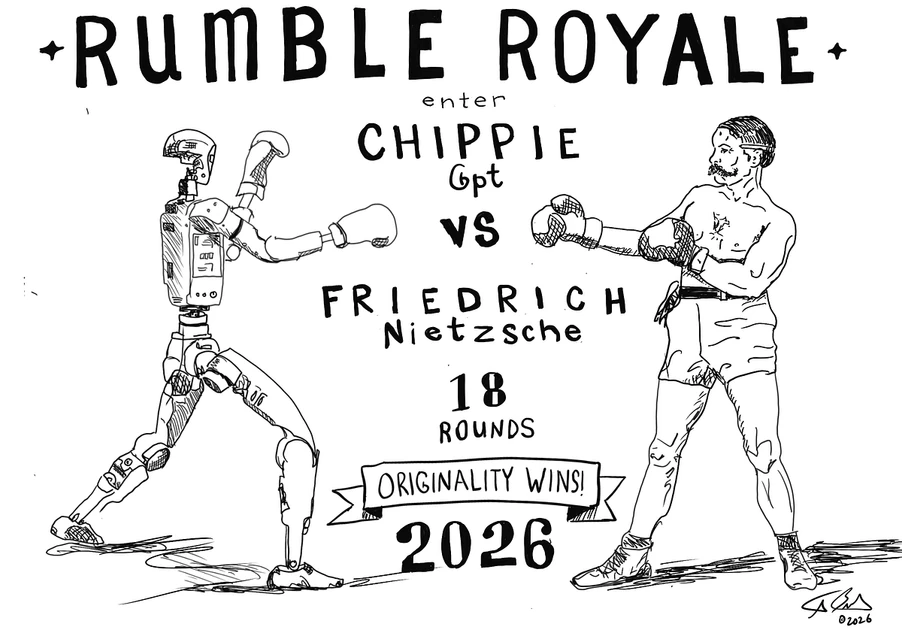 RUMBLE ROYALE
enter
CHIPPIE
Gpt
VS
FRIEDRICH
Nietzsche
18
ROUNDS
ORIGINALITY WINS!
2026
©2026